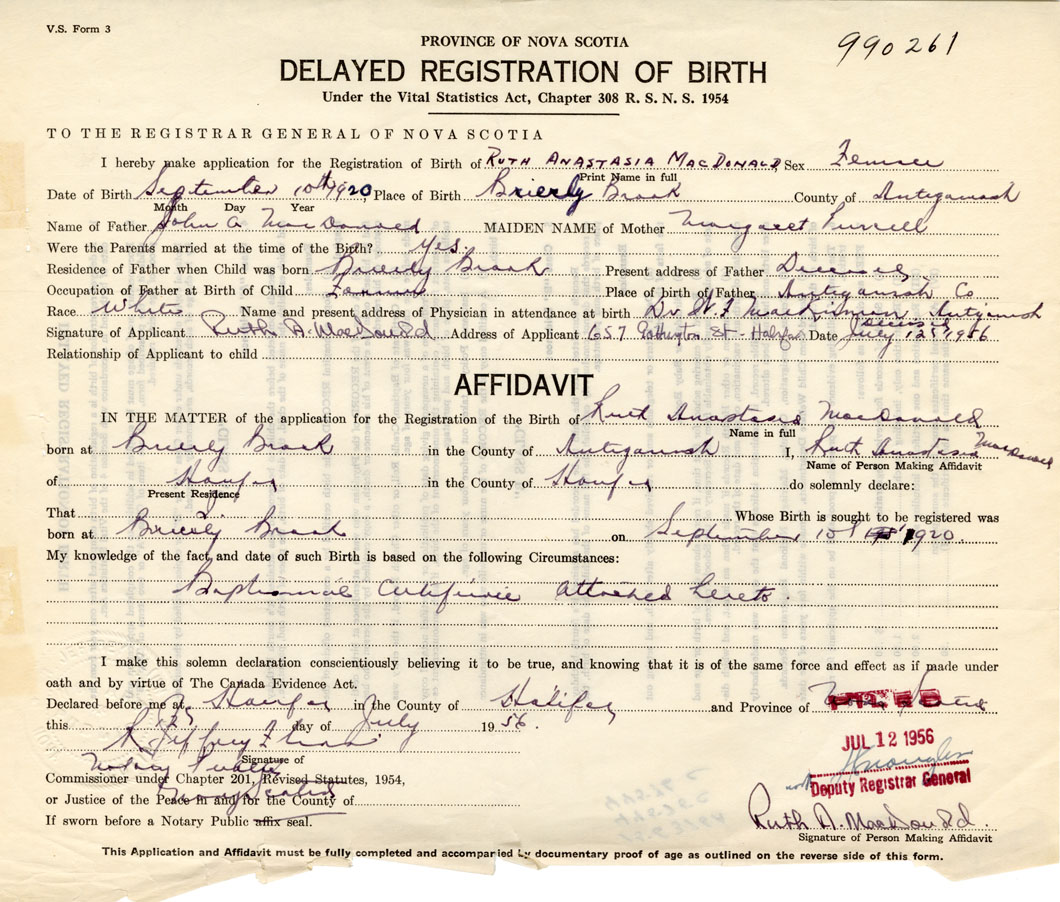 V.S. Form 3
990261
PROVINCE OF NOVA SCOTIA
DELAYED REGISTRATION OF BIRTH
Under the Vital Statistics Act, Chapter 308 R. S. N. S. 1954
TO THE REGISTRAR GENERAL OF NOVA SCOTIA
I hereby make application for the Registration of Birth of RUTH ANASTASIA MACDONALD Sex Female
Print Name in full
Date of Birth September 10th 1920, Place of Birth Brierly Brook County of Antigonish
Month Day Year
Name of Father John A MacDonald MAIDEN NAME of Mother Margaret Purcell
Were the Parents married at the time of the Birth? Yes.
Residence of Father when Child was born Brierly Brook Present address of Father Deceased
Occupation of Father at Birth of Child Farmer Place of birth of Father Antigonish Co
Race White Name and present address of Physician in attendance at birth Dr W. F MacKinnon Antigonish
Deceased
Signature of Applicant Ruth A. MacDonald Address of Applicant 657 St- Halifax Date July 12 1956
Relationship of Applicant to child
AFFIDAVIT
IN THE MATTER of the application for the Registration of the Birth of Ruth Anastasia MacDonald
Name in full
born at Brierly Brook in the County of Antigonish I, Ruth Anastasia MacDonald
Name of Person Making Affidavit
of Halifax in the County of Halifax do solemnly declare:
Present Residence
That Whose Birth is sought to be registered was
born at Brierly Brook on September 10 1920.
My knowledge of the fact and date of such Birth is based on the following Circumstances:
Baptismal Certificate attached hereto.
I make this solemn declaration conscientiously believing it to be true, and knowing that it is of the same force and effect as if made under
oath and by virtue of The Canada Evidence Act.
Declared before me at Halifax in the County of Halifax and Province of Nova Scotia
FILED
this day of July 1956.
JUL 12 1956
Signature of
Notary Public
Commissioner under Chapter 201, Revised Statutes, 1954,
Deputy Registrar General
Nova Scotia
or Justice of the Peace in and for the County of
If sworn before a Notary Public affix seal.
Ruth A. MacDonald.
Signature of Person Making Affidavit
This Application and Affidavit must be fully completed and accompanied by documentary proof of age as outlined on the reverse side of this form.